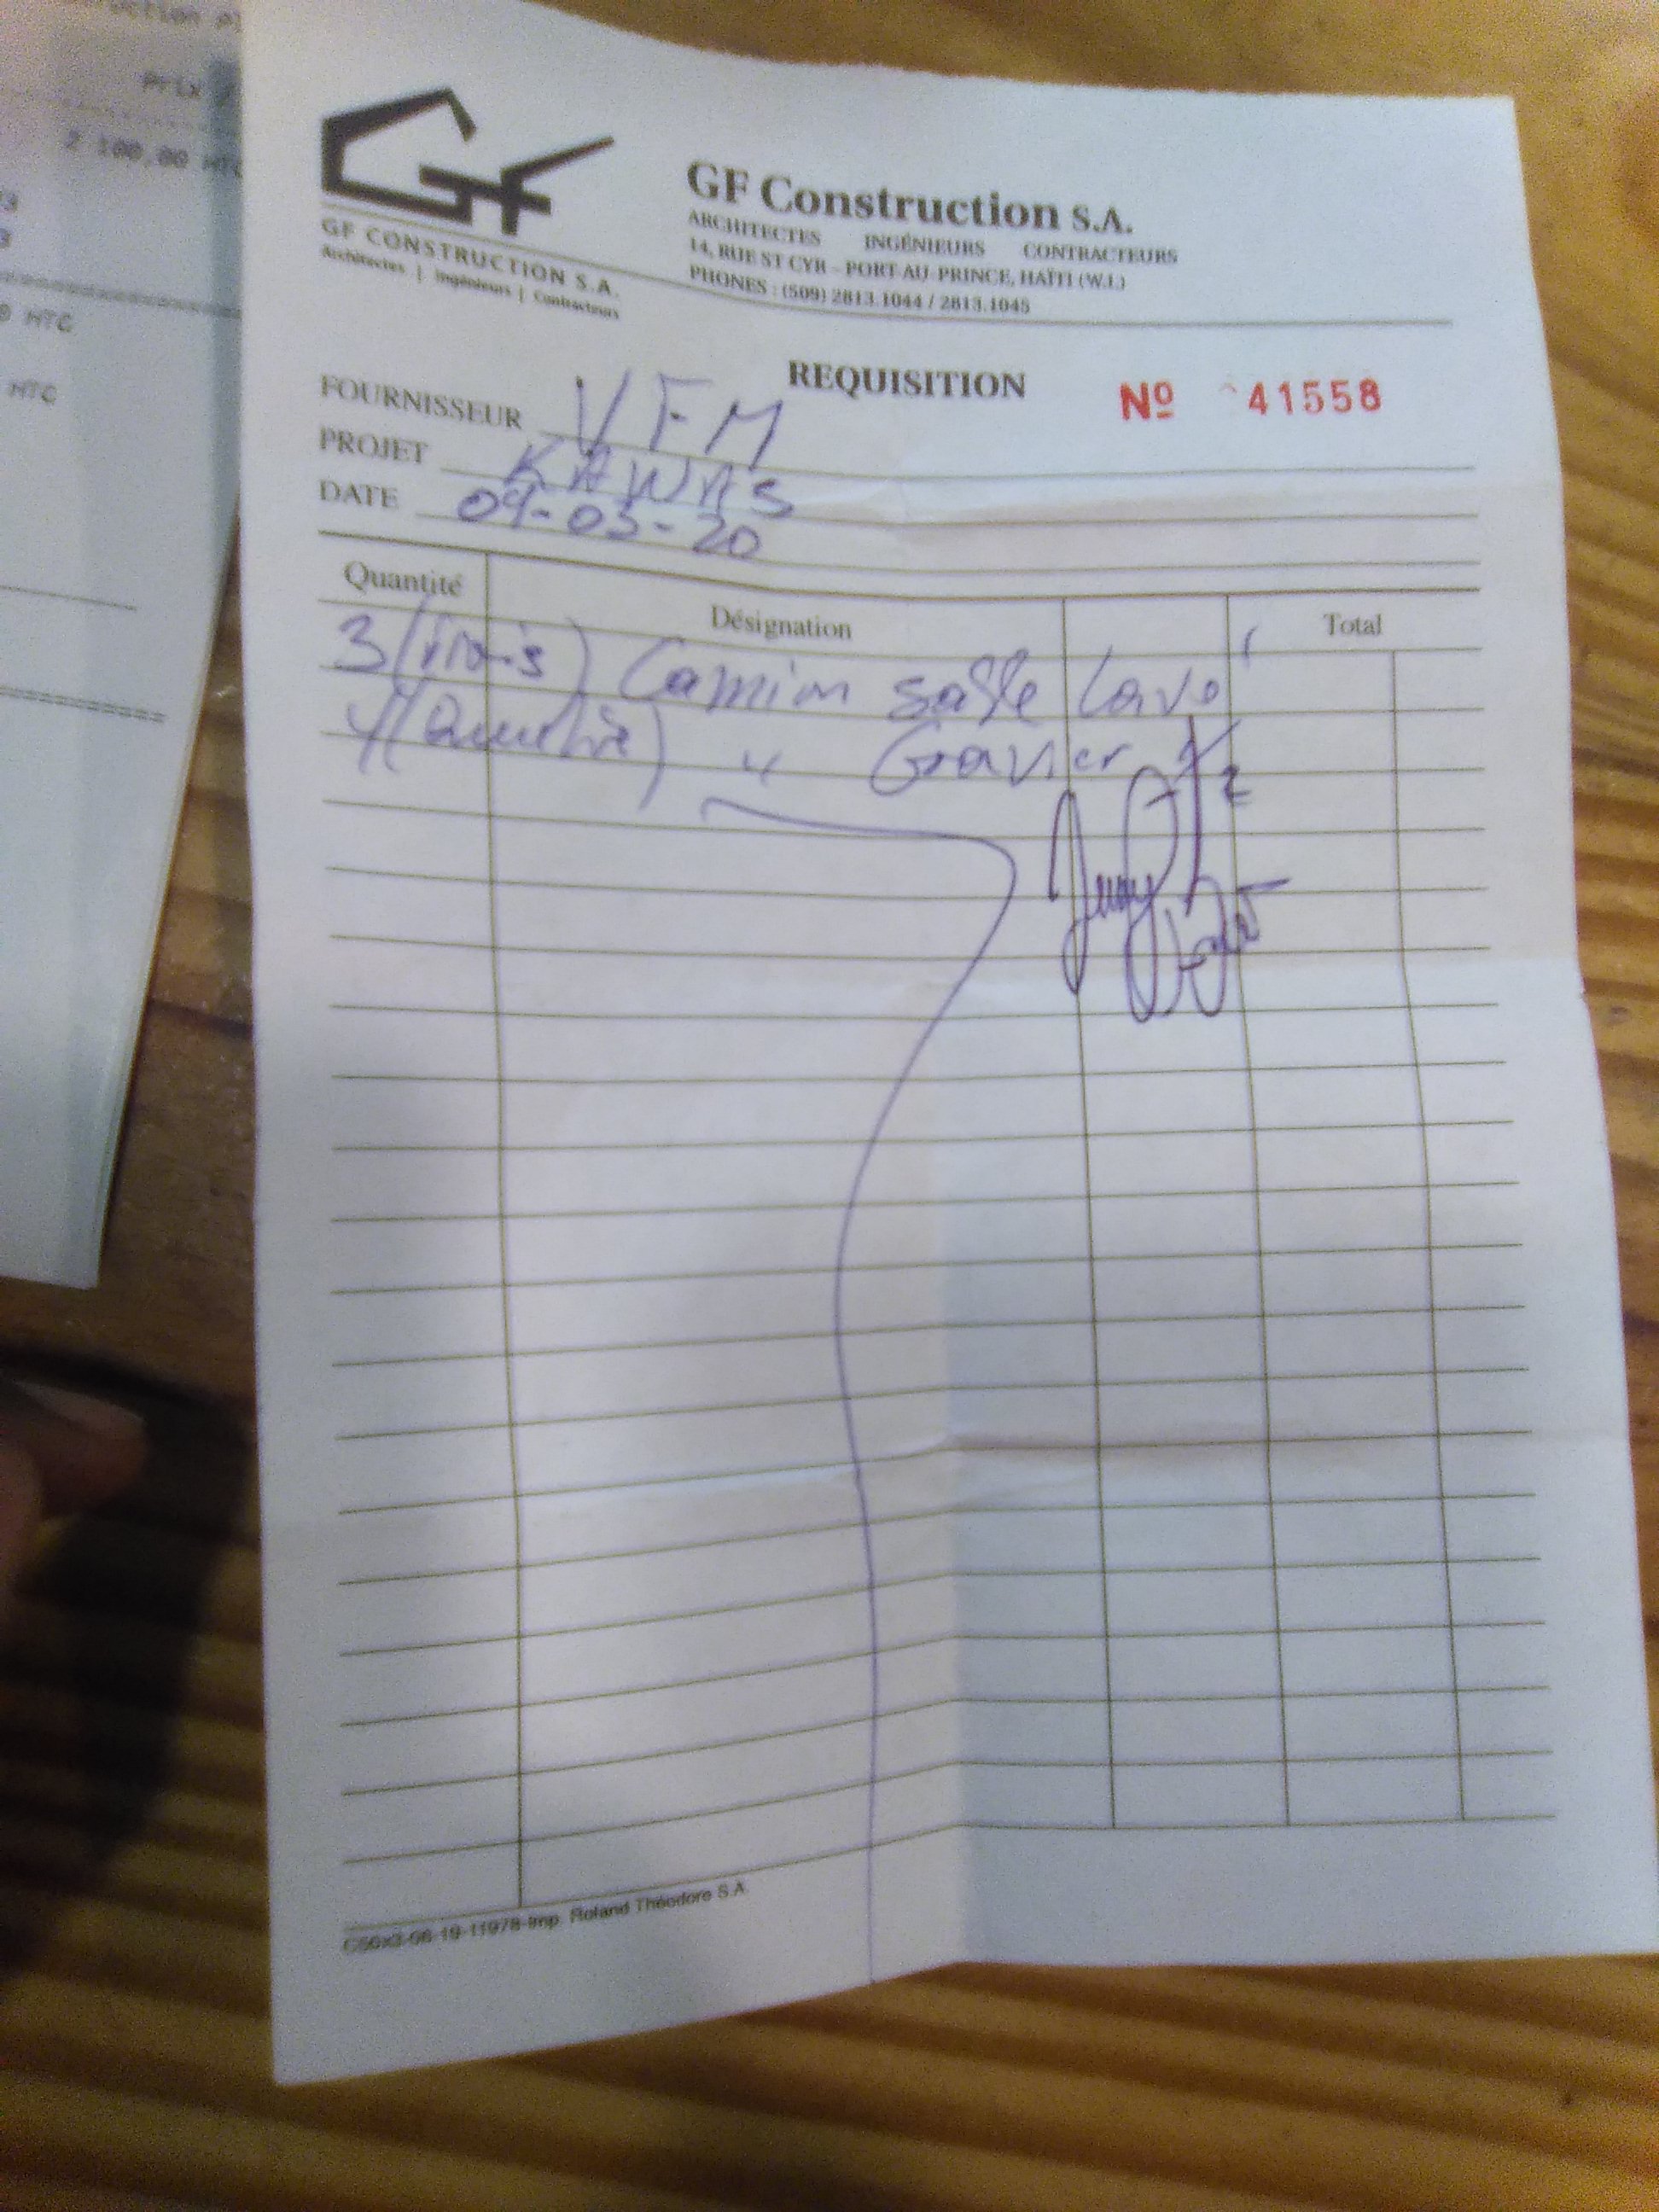 Prix
2 100,00 HTG
HTG
HTG
GF CONSTRUCTION S.A.
Architectes | Ingénieurs | Contracteurs
GF Construction S.A.
ARCHITECTES INGÉNIEURS CONTRACTEURS
14, RUE ST CYR - PORT-AU-PRINCE, HAÏTI (W.I.)
PHONES : (509) 2813.1044 / 2813.1045
REQUISITION
Nº 41558
FOURNISSEUR VFM
PROJET KAWAS
DATE 09-03-20
Quantité Désignation Total
3 (trois) Camion sable lavé
4 (Quatre) " Gravier 1/2
C50x3-06-19-11978-Imp. Roland Théodore S.A.